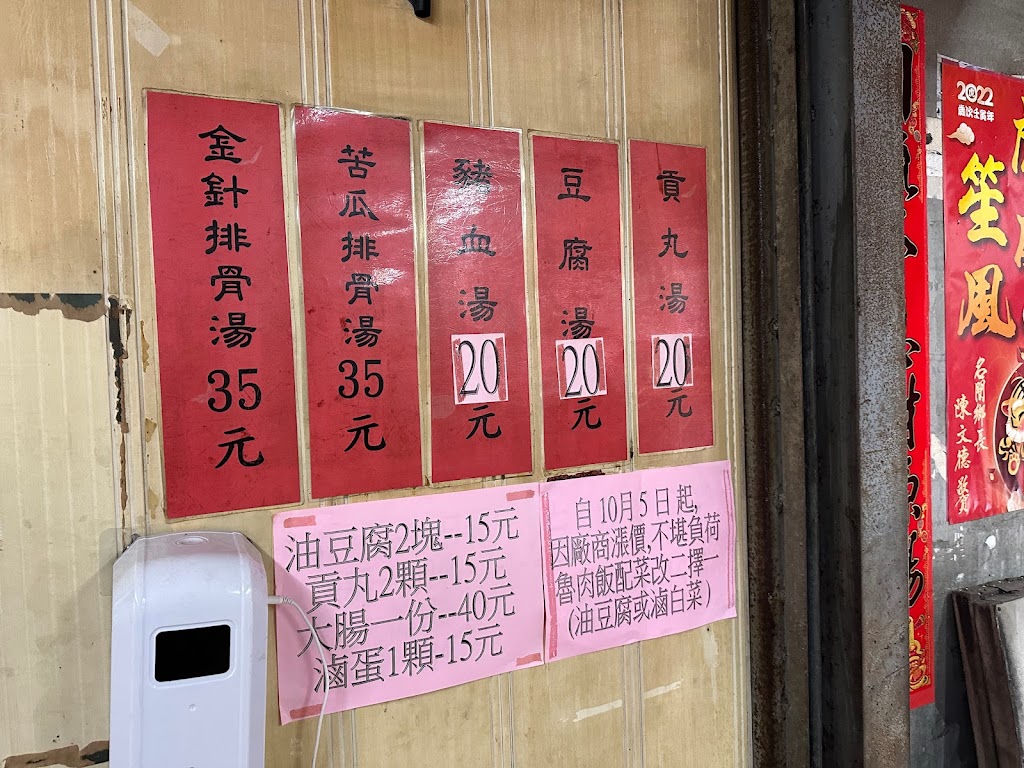 金針排骨湯35元
苦瓜排骨湯35元
豬血湯20元
豆腐湯20元
貢丸湯20元
油豆腐2塊--15元
貢丸2顆--15元
大腸一份--40元
滷蛋1顆-15元
自10月5日起,
因廠商漲價,不堪負荷
魯肉飯配菜改二擇一
(油豆腐或滷白菜)
2022
歲次壬寅年
笙風
名間鄉長
陳文德 賀